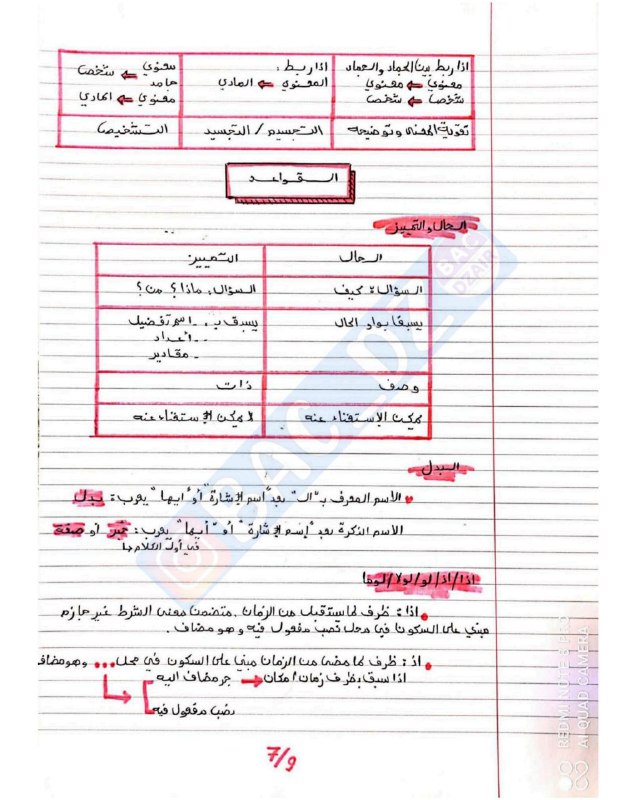 اذا ربط بين الجماد والجماد
معنوي ← معنوي
شخص ← شخص
اذا ربط :
المعنوي ← المادي
معنوي ← شخص
جامد
معنوي ← المادي
تقوية المعنى وتوضيحه
التجسيم / التجسيد
التشخيص
القواعد
الحال والتمييز
الحال
التمييز
السؤال: كيف
السؤال: ماذا؟ من؟
يسبق بواو الحال
يسبق بـ: - اسم تفضيل
- أعداد
- مقادير
وصف
ذات
يمكن الاستغناء عنه
لا يمكن الإستغناء عنه
البدل
الاسم المعرف بـ "ال" بعد "اسم الإشارة" أو "أيها" يعرب: بدل
الاسم النكرة بعد "إسم الإشارة" أو "أيها" يعرب: خبر أو صفة
في أول الكلام
اذا/اذ/لو/لولا/لوما
اذا: ظرف لما ستقبل من الزمان. متضمن معنى الشرط غير جازم
مبني على السكون في محل نصب مفعول فيه وهو مضاف.
اذ: ظرف لما مضى من الزمان مبني على السكون في محل ... وهو مضاف
اذا سبق بظرف زمان أو مكان → جر مضاف اليه
نصب مفعول فيه
7/9
BAC DZ
BAC
DZAIR
REDMI NOTE 8 PRO
AI QUAD CAMERA